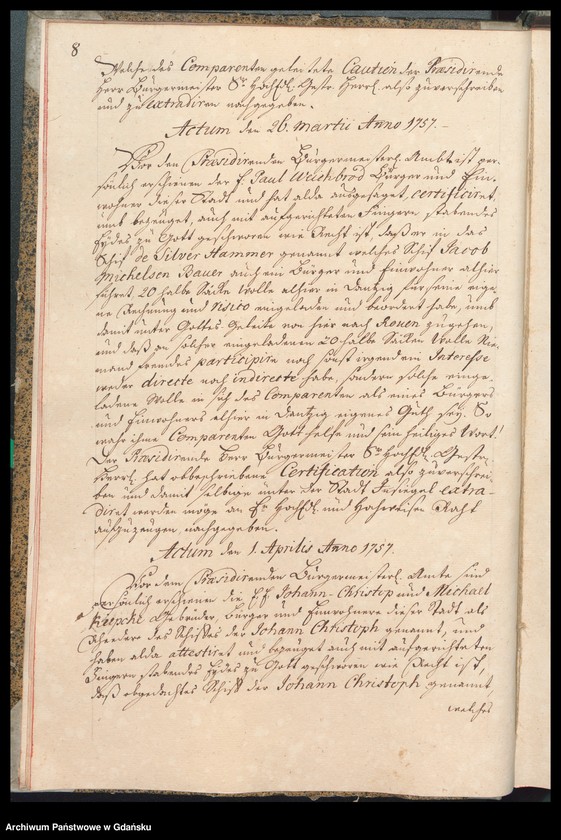 8
Welche des Comparenten geleistete Caution der Præsidirende
Herr Bürgermeister Sr Hochedl. Gestr. Herrl. also zuverschreiben
und zu extradiren nachgegeben.
Actum den 26. Martii Anno 1757.
Vor den Præsidirenden Bürgermeisterl. Ambt ist per-
söhnlich erschienen der E. Paul Weichbrod Bürger und Ein-
wohner dieser Stadt und hat alda ausgesaget, certificiret,
und bezeuget, auch mit aufgerichteten Fingern stabendes
Eydes zu Gott geschworen wie Recht ist, daß er in das
Schif de Silver Hammer genannt welches Schif Jacob
Michelsen Bauer auch ein Bürger und Einwohner alhier
führet, 20 halbe Säcken Wolle alhier in Dantzig für seine eige-
ne Rechnung und risico eingeladen und beordert habe, umb
damit unter Gottes Geleite von hier nach Rouen zugehen,
und daß an solcher eingeladenen 20 halbe Säcken Wolle Nie-
mand fremdes participire noch sonst irgend ein Interesse
weder directe noch indirecte habe, sondern solche einge-
ladene Wolle sey des Comparenten als eines Bürgers
und Einwohners alhier in Dantzig eigenes Guth sey. So
wahr ihme Comparenten Gott helfe und sein heiliges Wort.
Der Præsidirende Herr Bürgermeister Sr Hochedl. Gestr.
Herrl. hat obbeschriebene Certification also zuverschrei-
ben und damit selbige unter der Stadt Insiegel extra-
diret werden möge an Er. Hochedl. und Hochweisen Raht
aufzuzeugen, nachgegeben.
Actum den 1. Aprilis Anno 1757.
Vor dem Præsidirenden Bürgermeisterl. Amte sind
persönlich erschienen die E. E. Johann Christop und Michael
Kiepcke Gebrüder, Bürger und Einwohnere dieser Stadt als
Rheedere des Schiffes der Johann Christoph genannt, und
haben alda attestiret und bezeuget auch mit aufgerichteten
Fingern stabendes Eydes zu Gott geschworen wie Recht ist,
daß obgedachtes Schiff der Johann Christoph genannt,
welches
Archiwum Państwowe w Gdańsku